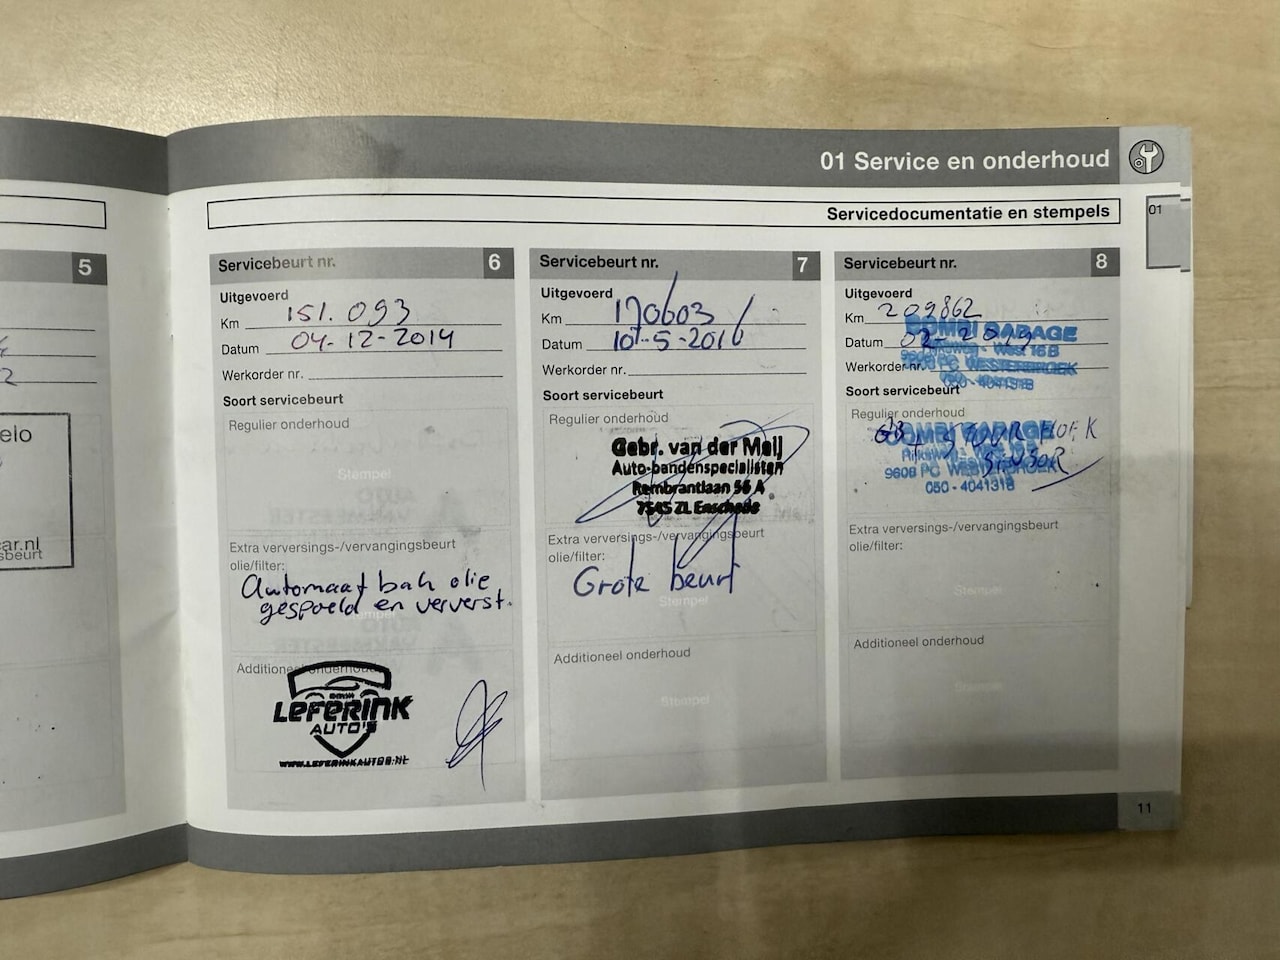 01 Service en onderhoud
01
Servicedocumentatie en stempels
5
elo
car.nl
sbeurt
Servicebeurt nr. 6
Uitgevoerd
Km 151.093
Datum 04-12-2014
Werkorder nr.
Soort servicebeurt
Regulier onderhoud
Stempel
Extra verversings-/vervangingsbeurt
olie/filter:
Automaat bak olie
gespoeld en ververst.
Additioneel onderhoud
LEFERINK
AUTO'S
WWW.LEFERINKAUTOS.NL
Servicebeurt nr. 7
Uitgevoerd
Km 170603
Datum 10-5-2016
Werkorder nr.
Soort servicebeurt
Regulier onderhoud
Gebr. van der Meij
Auto-bandenspecialisten
Rembrantlaan 56 A
7545 ZL Enschede
Extra verversings-/vervangingsbeurt
olie/filter:
Grote beurt
Stempel
Additioneel onderhoud
Stempel
Servicebeurt nr. 8
Uitgevoerd
Km 209862
Datum 02-2019
COMBI GARAGE
Werkorder nr.
9608 PC WESTERBROEK
050-4041318
Soort servicebeurt
Regulier onderhoud
COMBI GARAGE
STUUR HOEK
SENSOR
9608 PC WESTERBROEK
050-4041318
Extra verversings-/vervangingsbeurt
olie/filter:
Stempel
Additioneel onderhoud
Stempel
11